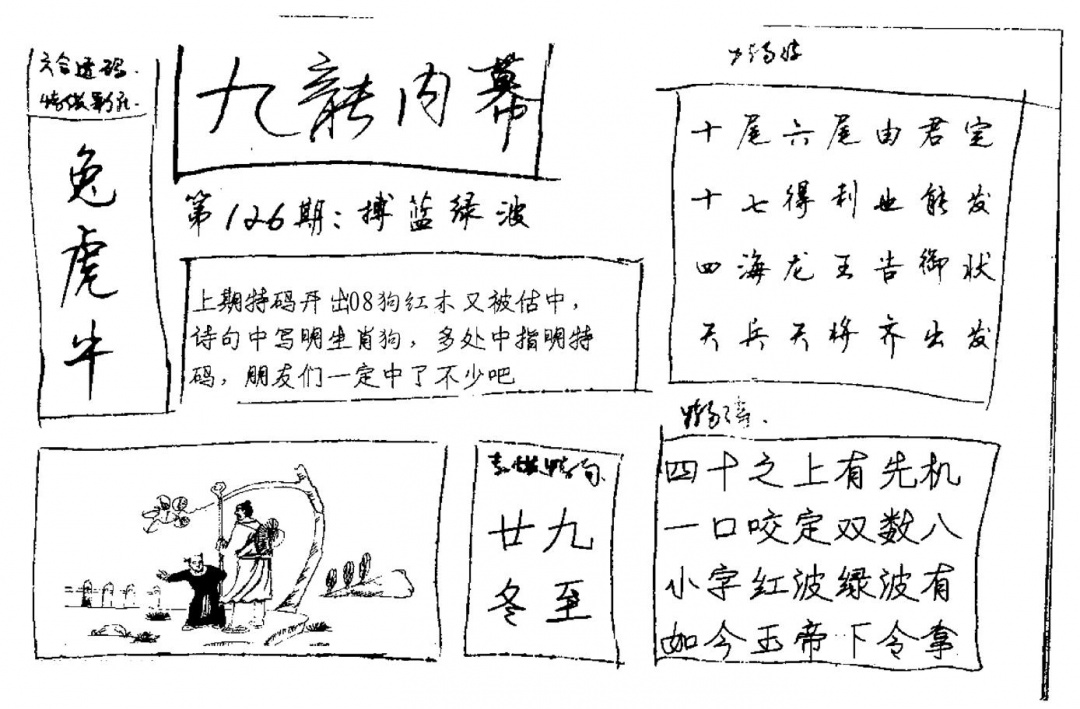 六合透码
兔
虎
牛
九龍内幕
第126期：搏蓝绿波
上期特码开出08狗红木又被估中，
诗句中写明生肖狗，多处中指明特
码，朋友们一定中了不少吧
十尾六尾由君定
十七得利也能发
四海龙王告御状
天兵天将齐出发
廿九
冬至
四十之上有先机
一口咬定双数八
小字红波绿波有
如今玉帝下令拿